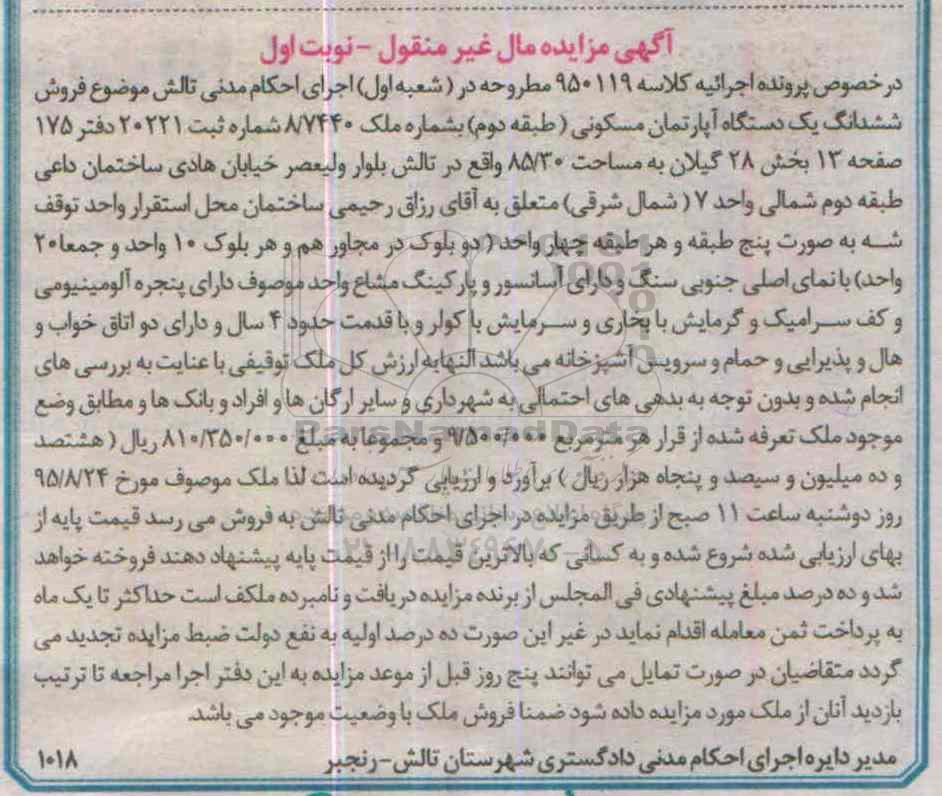 آگهی مزایده مال غیر منقول - نوبت اول
در خصوص پرونده اجرائیه کلاسه ۹۵۰۱۱۹ مطروحه در ( شعبه اول) اجرای احکام مدنی تالش موضوع فروش
ششدانگ یک دستگاه آپارتمان مسکونی ( طبقه دوم) بشماره ملک ۸/۷۴۴۰ شماره ثبت ۲۰۲۲۱ دفتر ۱۷۵
صفحه ۱۳ بخش ۲۸ گیلان به مساحت ۸۵/۳۰ واقع در تالش بلوار ولیعصر خیابان هادی ساختمان داعی
طبقه دوم شمالی واحد ۷ ( شمال شرقی) متعلق به آقای رزاق رحیمی ساختمان محل استقرار واحد توقف
شه به صورت پنج طبقه و هر طبقه چهار واحد ( دو بلوک در مجاور هم و هر بلوک ۱۰ واحد و جمعا۲۰
واحد) با نمای اصلی جنوبی سنگ و دارای آسانسور و پارکینگ مشاع واحد موصوف دارای پنجره آلومینیومی
و کف سرامیک و گرمایش با بخاری و سرمایش با کولر و با قدمت حدود ۴ سال و دارای دو اتاق خواب و
هال و پذیرایی و حمام و سرویس آشپزخانه می باشد النهابه ارزش کل ملک توقیفی با عنایت به بررسی های
انجام شده و بدون توجه به بدهی های احتمالی به شهرداری و سایر ارگان ها و افراد و بانک ها و مطابق وضع
موجود ملک تعرفه شده از قرار هر مترمربع ۹/۵۰۰/۰۰۰ و مجموعا به مبلغ ۸۱۰/۳۵۰/۰۰۰ ریال ( هشتصد
و ده میلیون و سیصد و پنجاه هزار ریال ) برآورد و ارزیابی گردیده است لذا ملک موصوف مورخ ۹۵/۸/۲۴
روز دوشنبه ساعت ۱۱ صبح از طریق مزایده در اجرای احکام مدنی تالش به فروش می رسد قیمت پایه از
بهای ارزیابی شده شروع شده و به کسانی که بالاترین قیمت را از قیمت پایه پیشنهاد دهند فروخته خواهد
شد و ده درصد مبلغ پیشنهادی فی المجلس از برنده مزایده دریافت و نامبرده ملکف است حداکثر تا یک ماه
به پرداخت ثمن معامله اقدام نماید در غیر این صورت ده درصد اولیه به نفع دولت ضبط مزایده تجدید می
گردد متقاضیان در صورت تمایل می توانند پنج روز قبل از موعد مزایده به این دفتر اجرا مراجعه تا ترتیب
بازدید آنان از ملک مورد مزایده داده شود ضمنا فروش ملک با وضعیت موجود می باشد.
مدیر دایره اجرای احکام مدنی دادگستری شهرستان تالش - رنجبر
۱۰۱۸
ParsNamadData